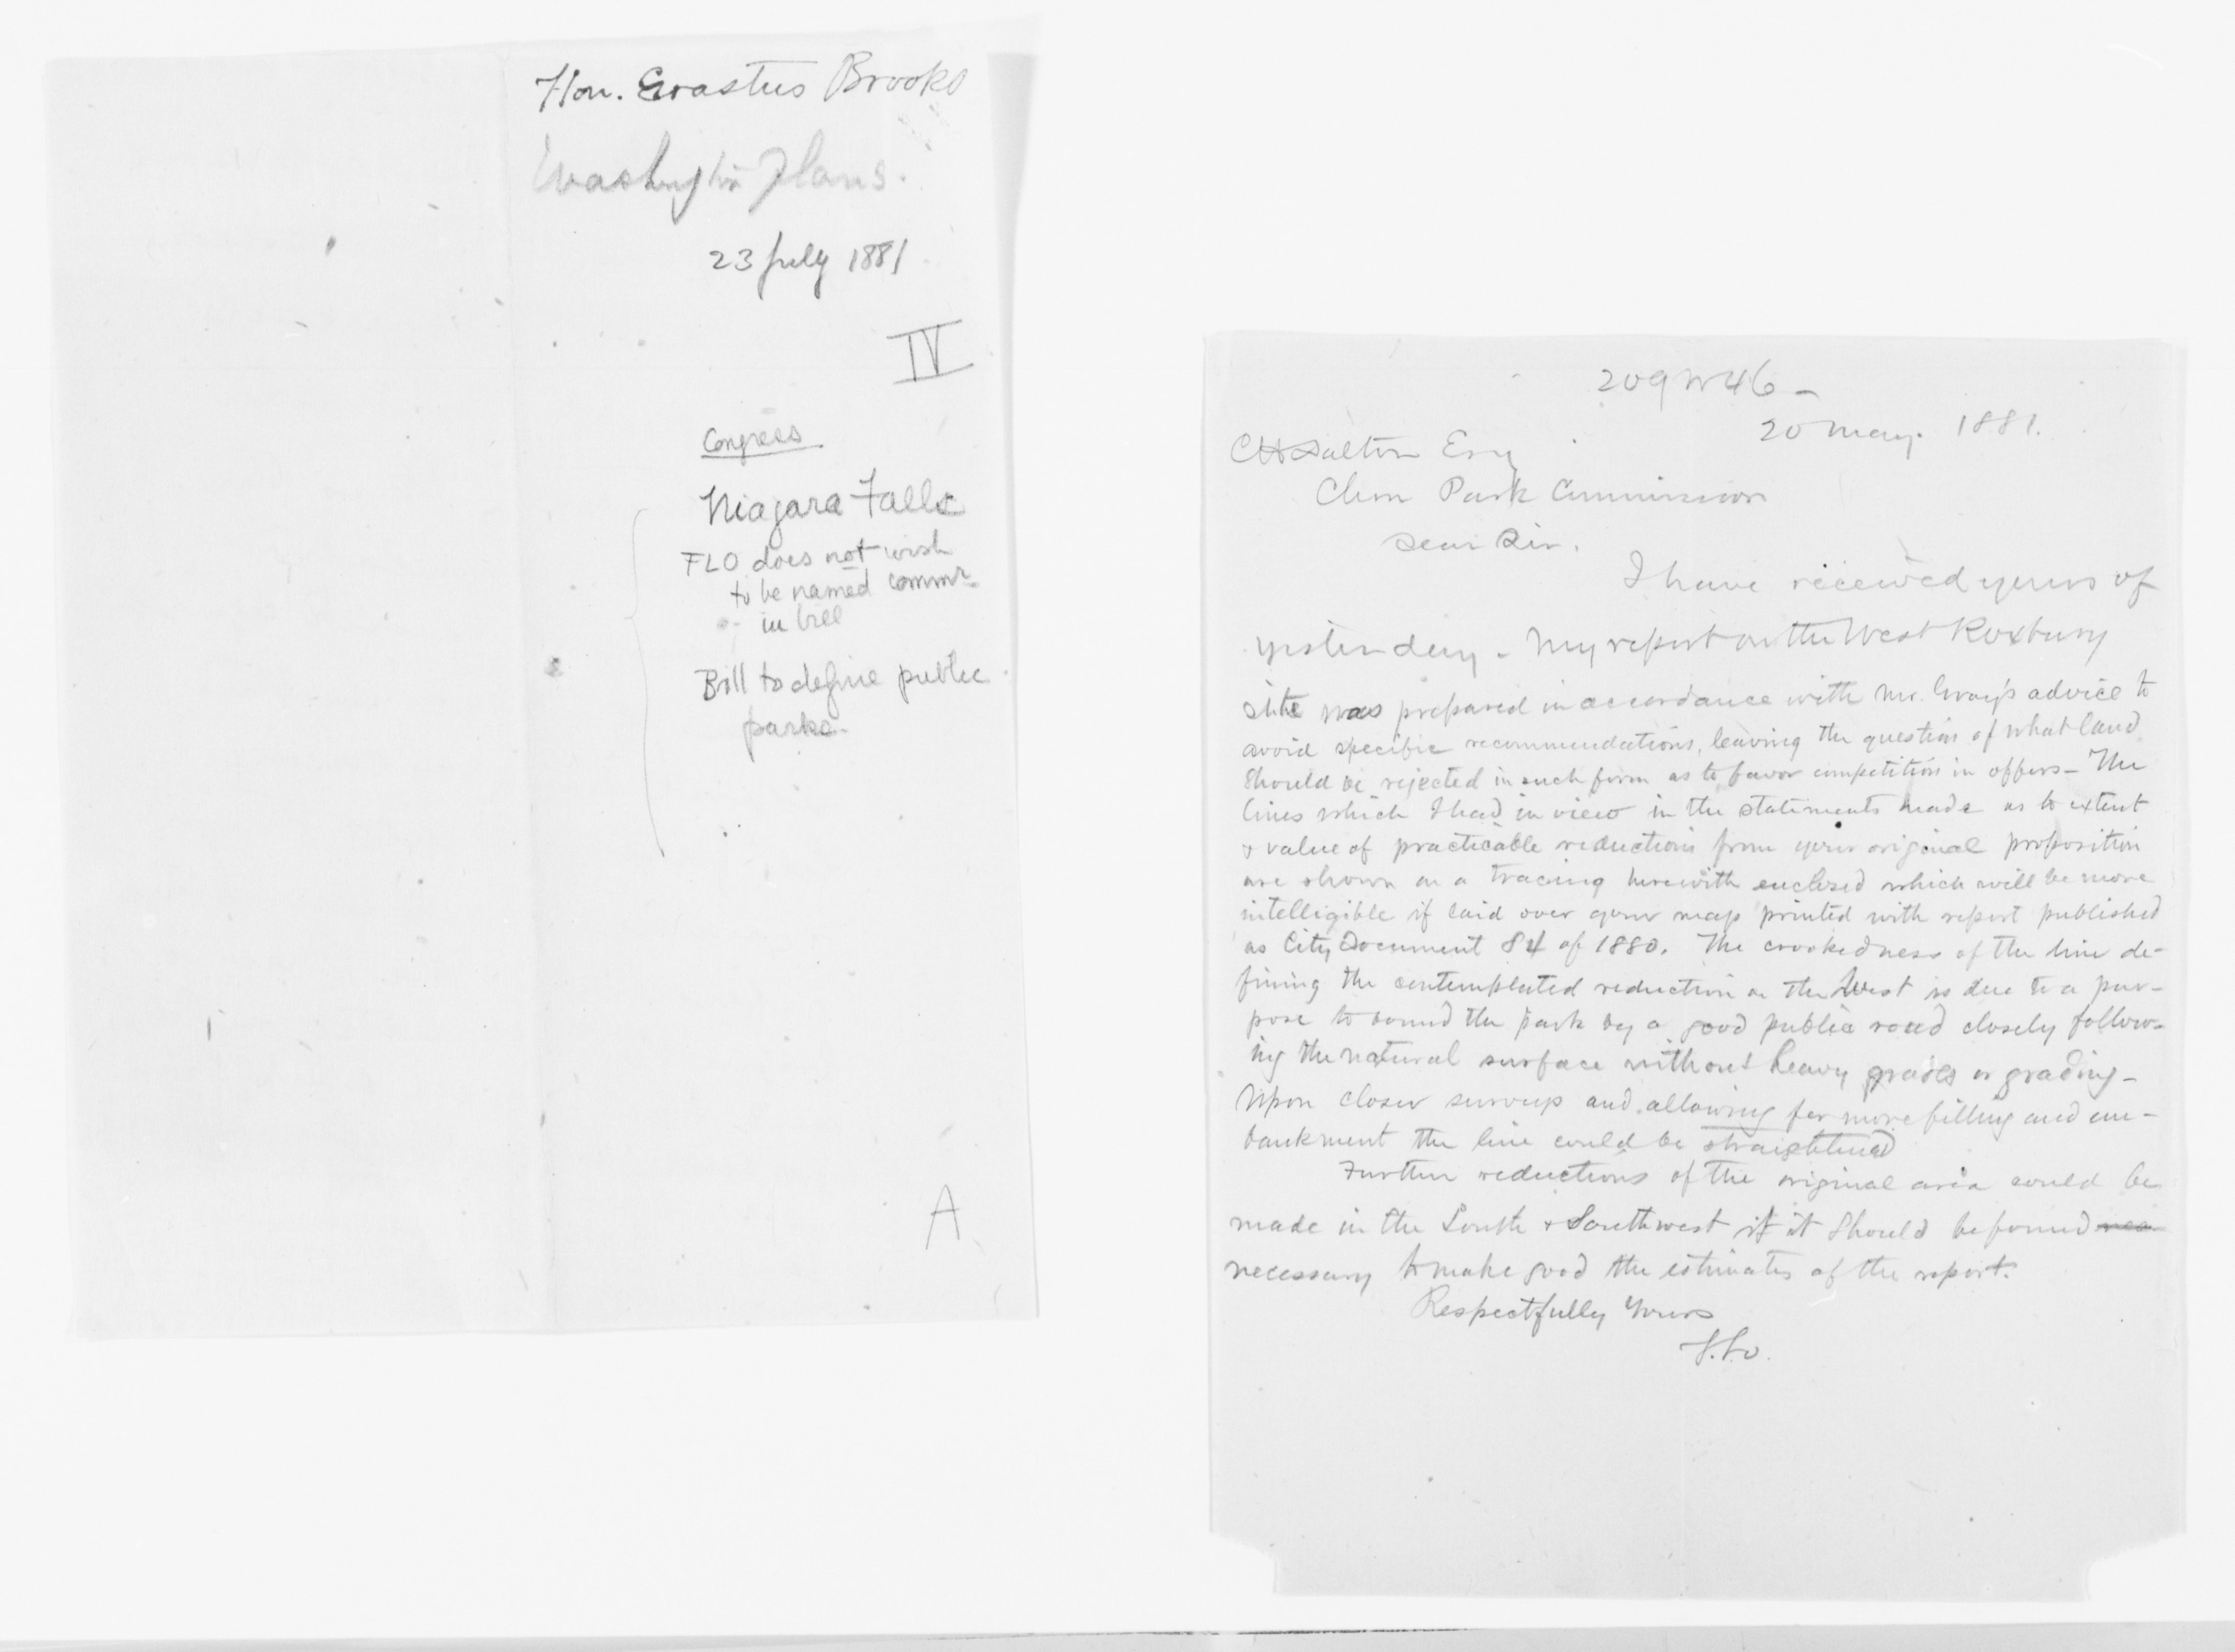 Hon. Erastus Brooks
Washington Plans.
23 July 1881
IV
Congress
Niagara Falls
FLO does not wish
to be named commr
in bill
Bill to define public
parks.
A
209 W 46 -
20 May. 1881.
CH Dalton Esq
Chm Park Commission
Dear Sir.
I have received yours of
yesterday - My report on the West Roxbury
site was prepared in accordance with Mr. Gray's advice to
avoid specific recommendations, leaving the question of what land
should be rejected in such form as to favor competition in offers - The
lines which I had in view in the statements made as to extent
& value of practicable reductions from your original proposition
are shown on a tracing herewith enclosed which will be more
intelligible if laid over your map printed with report published
as City Document 84 of 1880. The crookedness of the line de-
fining the contemplated reduction on the West is due to a pur-
pose to bound the park by a good public road closely follow-
ing the natural surface without heavy grades or grading -
Upon closer surveys and allowing for more filling and em-
bankment the line could be straightened
Further reductions of the original area could be
made in the South & Southwest if it should be found nec
necessary to make good the estimates of the report.
Respectfully Yours
F.L.O.